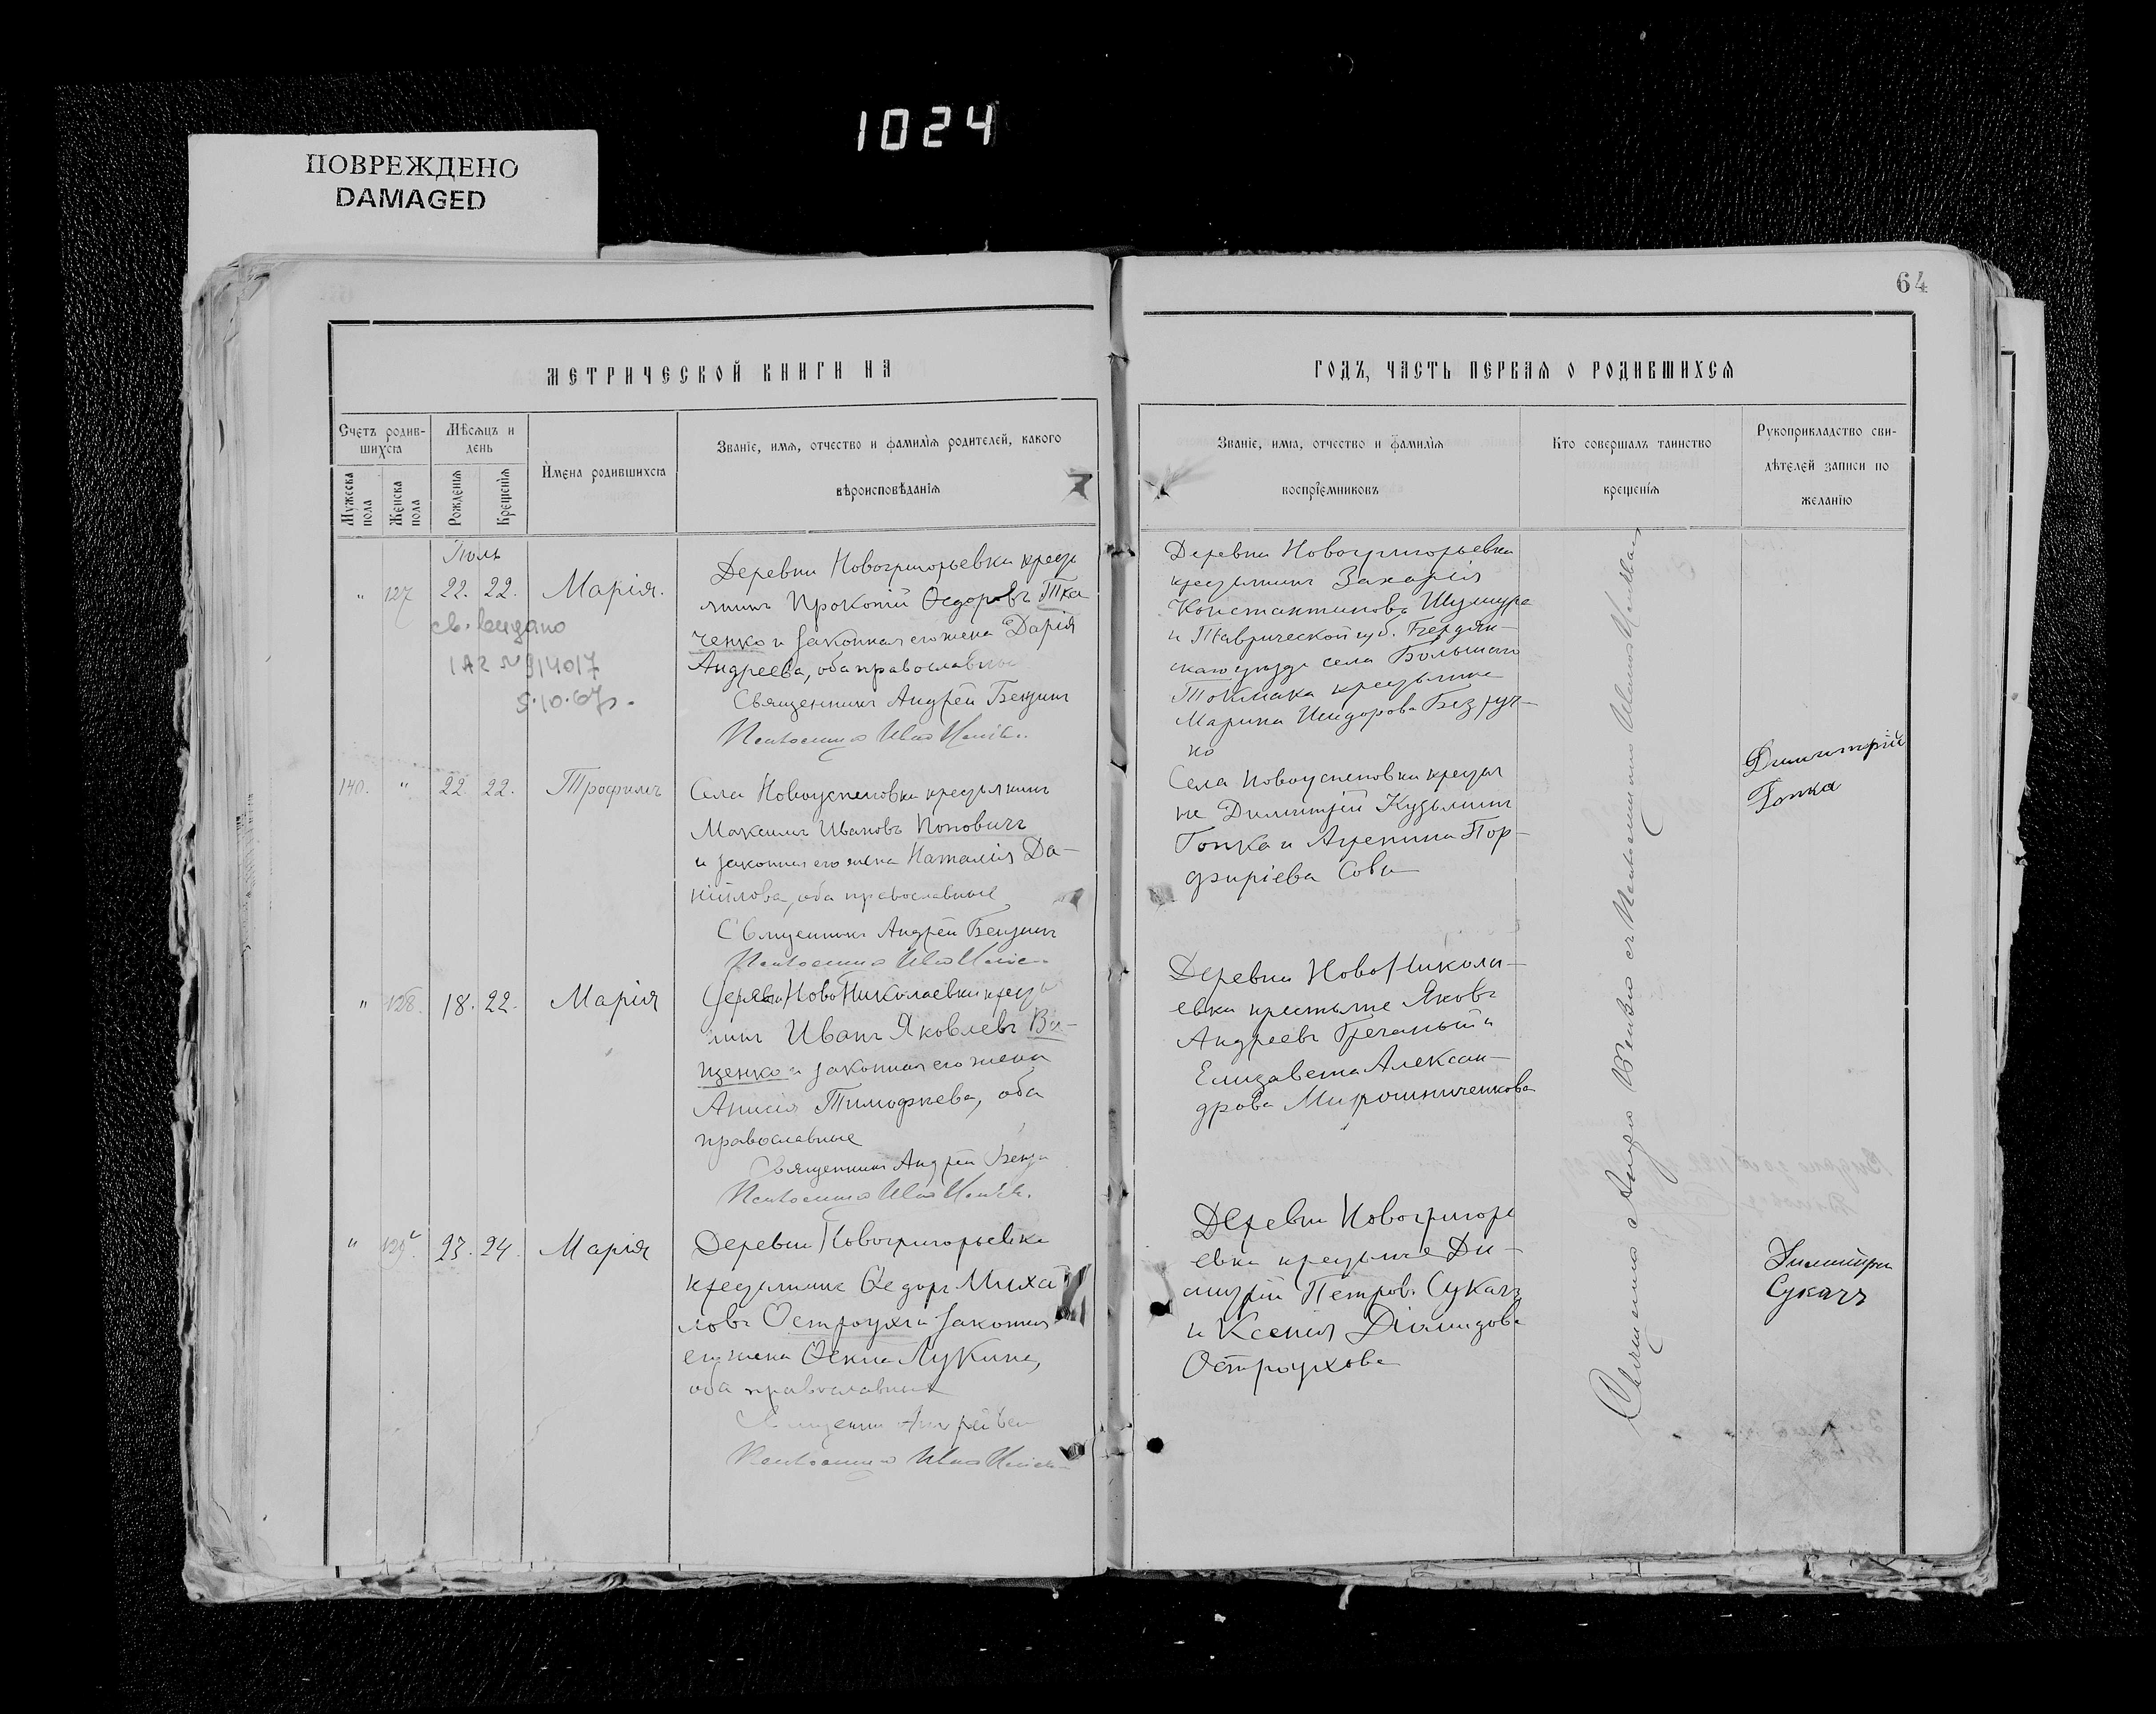 1024
ПОВРЕЖДЕНО
DAMAGED
64
МЕТРИЧЕСКОЙ КНИГИ НА
ГОДЪ, ЧАСТЬ ПЕРВАЯ О РОДИВШИХСЯ
Счетъ родив-
шихся
Мужеска
пола
Женска
пола
Мѣсяцъ и
день
Рожденія
Крещенія
Имена родившихся
Званіе, имя, отчество и фамилія родителей, какого
вѣроисповѣданія
Званіе, имя, отчество и фамилія
воспріемниковъ
Кто совершалъ таинство
крещенія
Рукоприкладство сви-
дѣтелей записи по
желанію
Іюль
" 127 22. 22. Марія.
св. видано
9/14017
5.10.67р.
Деревни Новогригорьевки кресть
янинъ Прокопій Ѳедоровъ Тка
ченко и законная его жена Дарія
Андреева, оба православные
Священникъ Андрей
Псаломщикъ
Деревни Новогригорьевки
крестьянинъ Захарія
Константиновъ Шушура
и Таврической губ. Бердян-
скаго уѣзда села Большого
Токмака крестьянка
Марина Исидорова Безруч-
ко
140. " 22. 22. Трофимъ
Села Новоуспеновки крестьянинъ
Максимъ Ивановъ Поповичъ
и законная его жена Наталія Да-
ніилова, оба православные
Священникъ Андрей
Псаломщикъ
Села Новоуспеновки крестья
не Димитрій Кузьминъ
Гопка и Агрепина Пор-
фиріева Сова
Димитрій
Гопка
" 128. 18. 22. Марія
Деревни НовоНиколаевки кресть
нинъ Иванъ Яковлевъ
щенко и законная его жена
Анисія Тимофеева, оба
православные
Священникъ Андрей
Псаломщикъ
Деревни НовоНикола-
евки крестьяне Яковъ
Андреевъ Гречаный и
Елизавета Алексан-
дрова Мирошниченкова
" 129. 23. 24. Марія
Деревни Новогригорьевки
крестьянинъ Ѳедоръ Михай
ловъ Остроухъ и законная
его жена Ѳекла Лукина,
оба православные
Псаломщикъ
Деревни Новогригорь
евки крестьяне Ди-
митрій Петровъ Сукачъ
и Ксенія Діомидова
Остроухова
Димитрій
Сукачъ
Священникъ Андрей